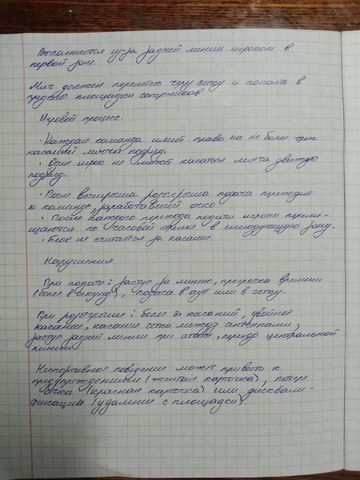 Выполняется из-за задней линии игроком в
первой зоне.
Мяч должен перелететь через сетку и попасть в
пределы площадки соперников
Игровой процесс.
• Каждая команда имеет право на не более трёх
касаний мяча подряд.
• Один игрок не может касаться мяча дважды
подряд.
• После выигрыша розыгрыша подача переходит
к команде, заработавшей очко
• После каждого перехода подачи игроки переме-
щаются по часовой стрелке в следующую зону.
• Блок не считается за касание.
Нарушения
При подаче: заступ за линию, просрочка времени
(более 8 секунд), подача в аут или в сетку.
При розыгрыше: более 3х касаний, двойное
касание, касание сетки между антеннами,
заступ задней линии при атаке, переход центральной
линии.
Неспортивное поведение может привести к
предупреждениям (жёлтая карточка), потере
очка (красная карточка) или дисквали-
фикации (удаление с площадки).